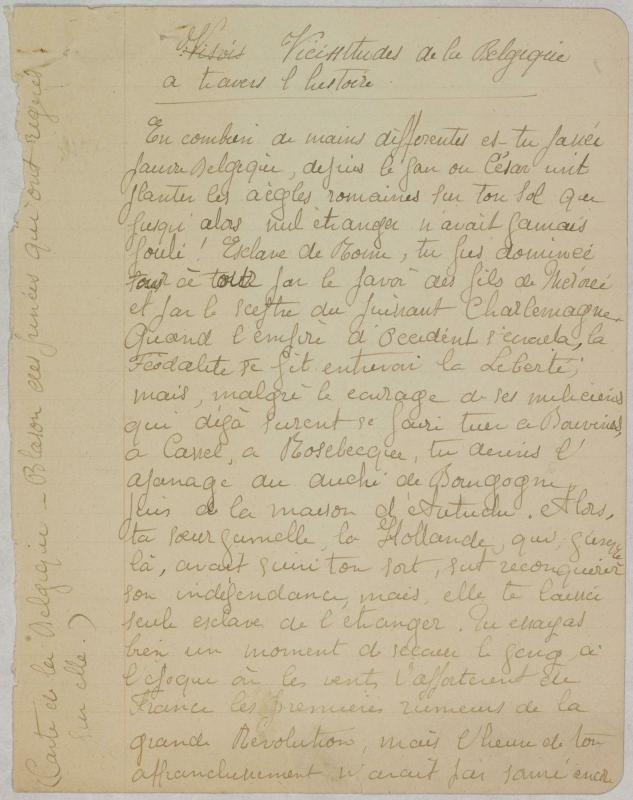 Vicissitudes de la Belgique
a travers l'histoire
En combien de mains differentes es-tu passée
pauvre Belgique, depuis le jour ou César vint
planter les aègles romaines sur ton sol que
jusqu'alors nul étranger n'avait jamais
foulé! Esclave de Rome, tu fus dominée
tour à tour par le pavoi des fils de Merovée
et par le sceptre du puissant Charlemagne.
Quand l'empire d'Occident s'écroula, la
Féodalité te fit entrevoir la Liberté;
mais, malgré le courage de ses miliciens
qui déjà surent se faire tuer à Bouvines,
à Cassel, a Rosebecque, tu devins l'
apanage du duché de Bourgogne,
puis de la maison d'Autriche. Alors,
ta soeur jumelle, la Hollande, qui, jusque
là, avait suivi ton sort, sut reconquérir
son indépendance, mais elle te laissa
seule esclave de l'étranger. Tu essayas
bien un moment de secouer le joug, à
l'époque où les vents t'apportèrent de
France les premières rumeurs de la
grande Révolution, mais l'heure de ton
affranchissement n'avait pas sonné encore
(Carte de la Belgique - Blason des princes qui ont régné
sur elle.)